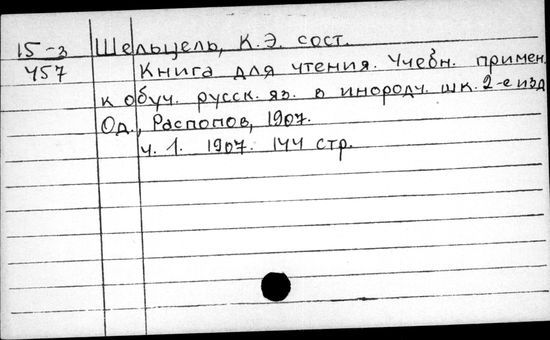 15-з Шельцель, К.Э. сост.
457 Книга для чтения. Учебн. примен.
к обуч. русск. яз. в инородч. шк. 2-е изд
Од., Распопов, 1907.
ч. 1. 1907. 144 стр.